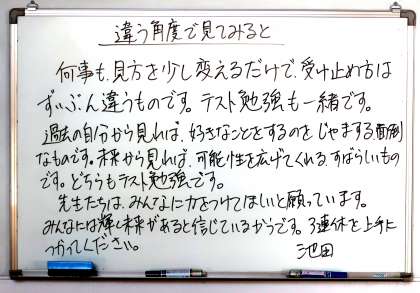 違う角度で見てみると
何事も、見方を少し変えるだけで、受け止め方は
ずいぶん違うものです。テスト勉強も一緒です。
過去の自分から見れば、好きなことをするのをじゃまする面倒
なものです。未来から見れば、可能性を広げてくれるすばらしいもの
です。どちらもテスト勉強です。
先生たちは、みんなに力をつけてほしいと願っています。
みんなには輝く未来があると信じているからです。3連休を上手に
つかってください。
池田